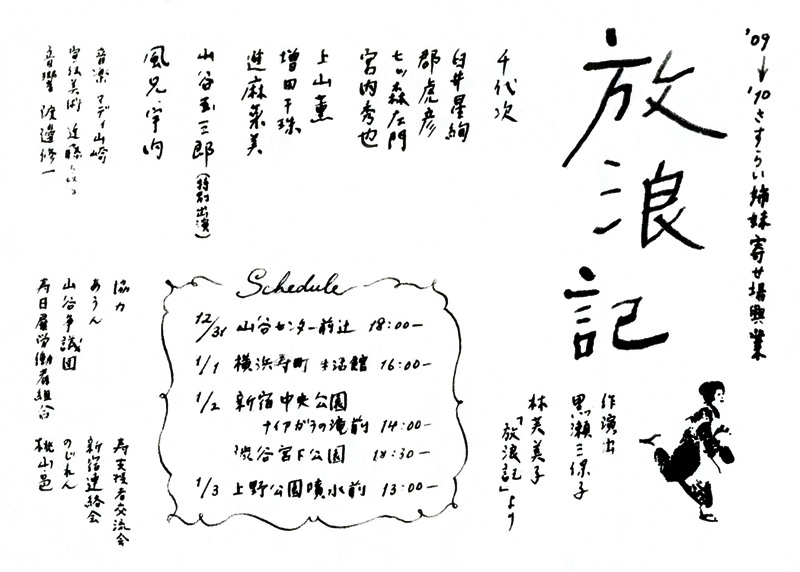 '09→'10さすらい姉妹寄せ場興業
放浪記
作演出
黒瀬三保子
林芙美子
「放浪記」より
千代次
臼井星絢
郡虎彦
七ツ森左門
宮内秀也
上山薫
増田千珠
進麻菜美
山谷玉三郎(特別出演)
風兄宇内
音楽 マディ山崎
宣伝美術 近藤ちはる
音響 渡邊修一
Schedule
12/31 山谷センター前辻 18:00―
1/1 横浜寿町 生活館 16:00―
1/2 新宿中央公園
ナイアガラの滝前 14:00―
渋谷宮下公園 18:30―
1/3 上野公園噴水前 13:00―
協力
あうん
山谷争議団
寿日雇労働者組合
寿支援者交流会
新宿連絡会
のじれん
桃山邑